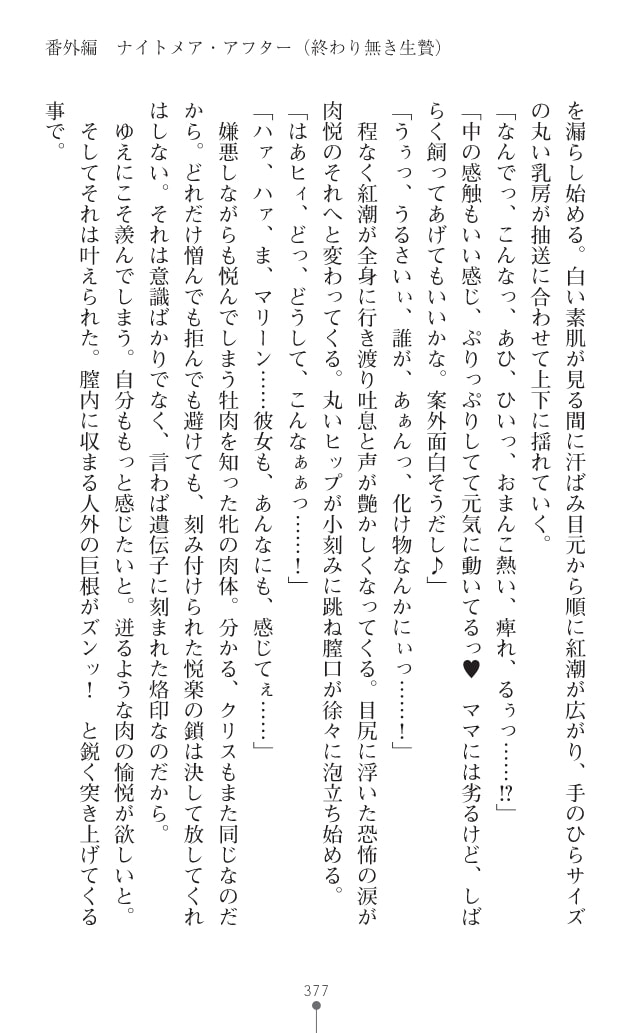 番外編　ナイトメア・アフター（終わり無き生贄）
を漏らし始める。白い素肌が見る間に汗ばみ目元から順に紅潮が広がり、手のひらサイズ
の丸い乳房が抽送に合わせて上下に揺れていく。
「なんでっ、こんなっ、あひ、ひいっ、おまんこ熱い、痺れ、るぅっ……!?」
「中の感触もいい感じ、ぷりっぷりしてて元気に動いてるっ♥　ママには劣るけど、しば
らく飼ってあげてもいいかな。案外面白そうだし♪」
「うぅっ、うるさいぃ、誰が、あぁんっ、化け物なんかにぃっ……！」
　程なく紅潮が全身に行き渡り吐息と声が艶かしくなってくる。目尻に浮いた恐怖の涙が
肉悦のそれへと変わってくる。丸いヒップが小刻みに跳ね膣口が徐々に泡立ち始める。
「はあヒィ、どっ、どうして、こんなぁぁっ……！」
「ハァ、ハァ、ま、マリーン……彼女も、あんなにも、感じてぇ……」
　嫌悪しながらも悦んでしまう牡肉を知った牝の肉体。分かる、クリスもまた同じなのだ
から。どれだけ憎んでも拒んでも避けても、刻み付けられた悦楽の鎖は決して放してくれ
はしない。それは意識ばかりでなく、言わば遺伝子に刻まれた烙印なのだから。
　ゆえにこそ羨んでしまう。自分ももっと感じたいと。迸るような肉の愉悦が欲しいと。
　そしてそれは叶えられた。膣内に収まる人外の巨根がズンッ！　と鋭く突き上げてくる
事で。
377